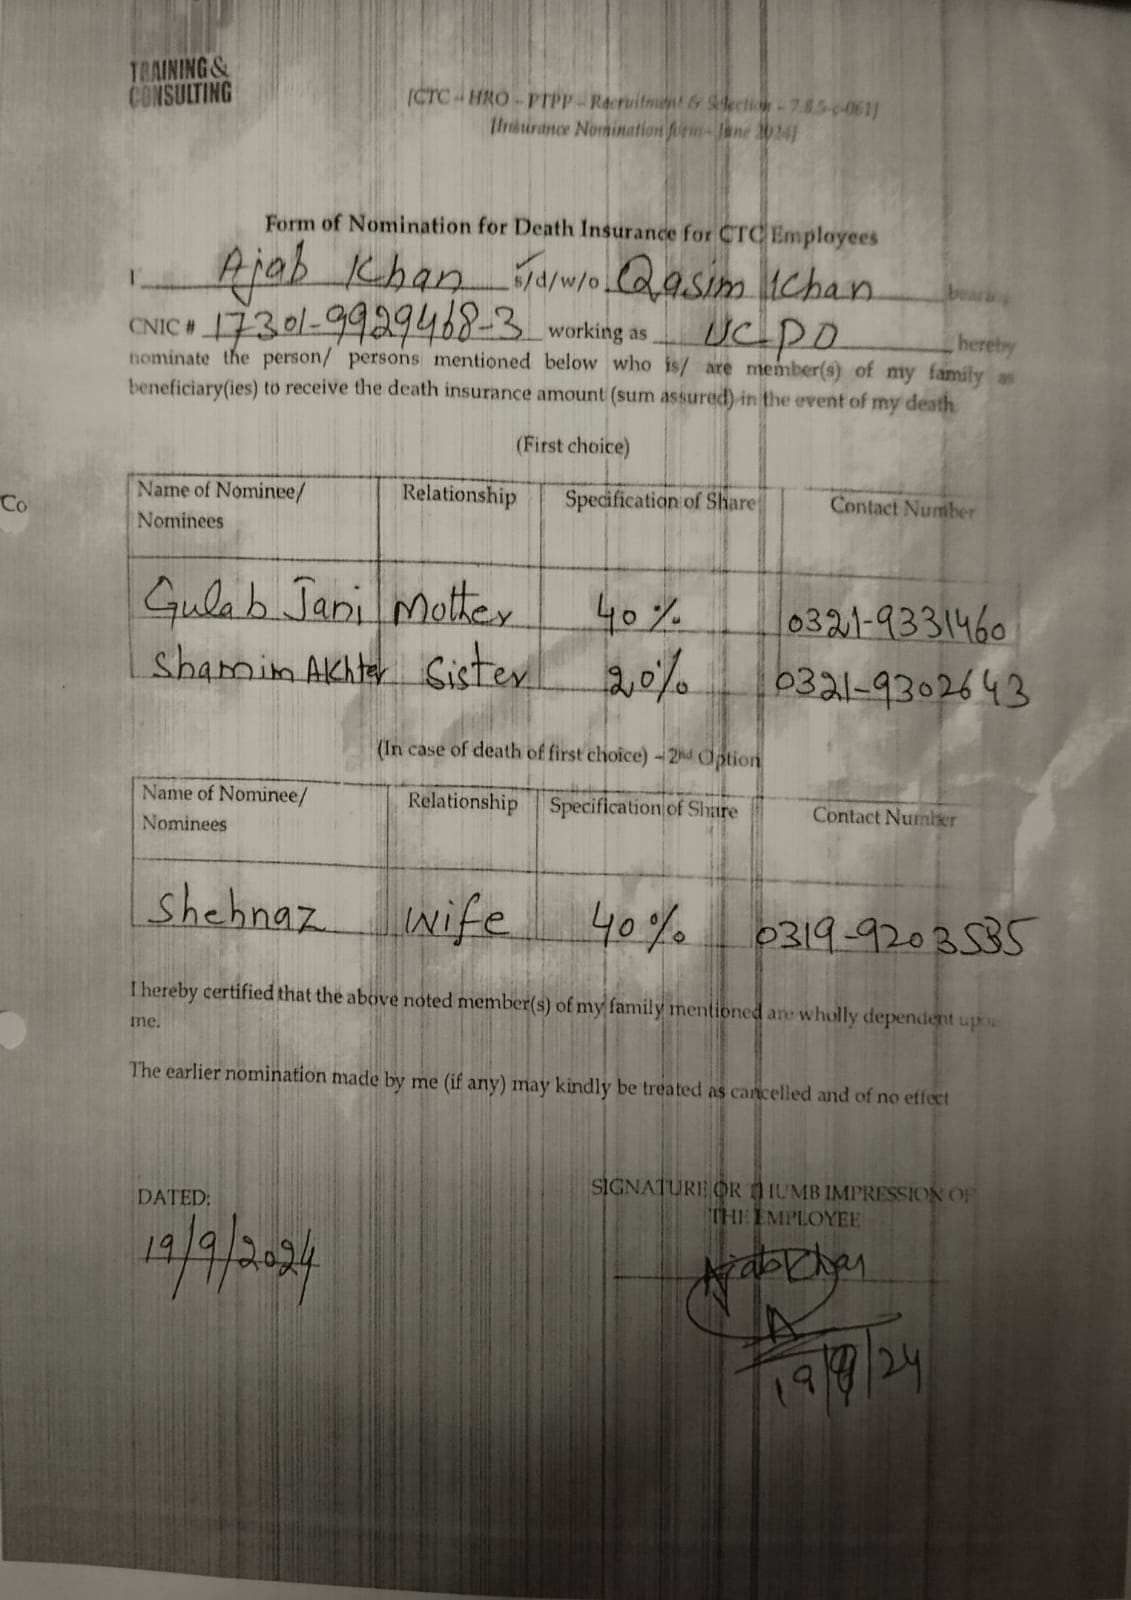 TRAINING &
CONSULTING
[CTC – HRO – PTPP – Recruitment & Selection – 7.8.5-c-061]
[Insurance Nomination form – June 2024]
Form of Nomination for Death Insurance for CTC Employees
I Ajab Khan s/d/w/o Qasim Khan bearing
CNIC # 17301-9929468-3 working as UCPO hereby
nominate the person/ persons mentioned below who is/ are member(s) of my family as
beneficiary(ies) to receive the death insurance amount (sum assured) in the event of my death
(First choice)
Name of Nominee/ Relationship Specification of Share Contact Number
Nominees
Gulab Jani Mother 40% 0321-9331460
Shamim Akhter Sister 20% 0321-9302643
Co
(In case of death of first choice) – 2nd Option
Name of Nominee/ Relationship Specification of Share Contact Number
Nominees
Shehnaz Wife 40% 0319-9203535
I hereby certified that the above noted member(s) of my family mentioned are wholly dependent upon
me.
The earlier nomination made by me (if any) may kindly be treated as cancelled and of no effect
DATED: SIGNATURE OR THUMB IMPRESSION OF
THE EMPLOYEE
19/9/2024
Ajab Khan
19/9/24